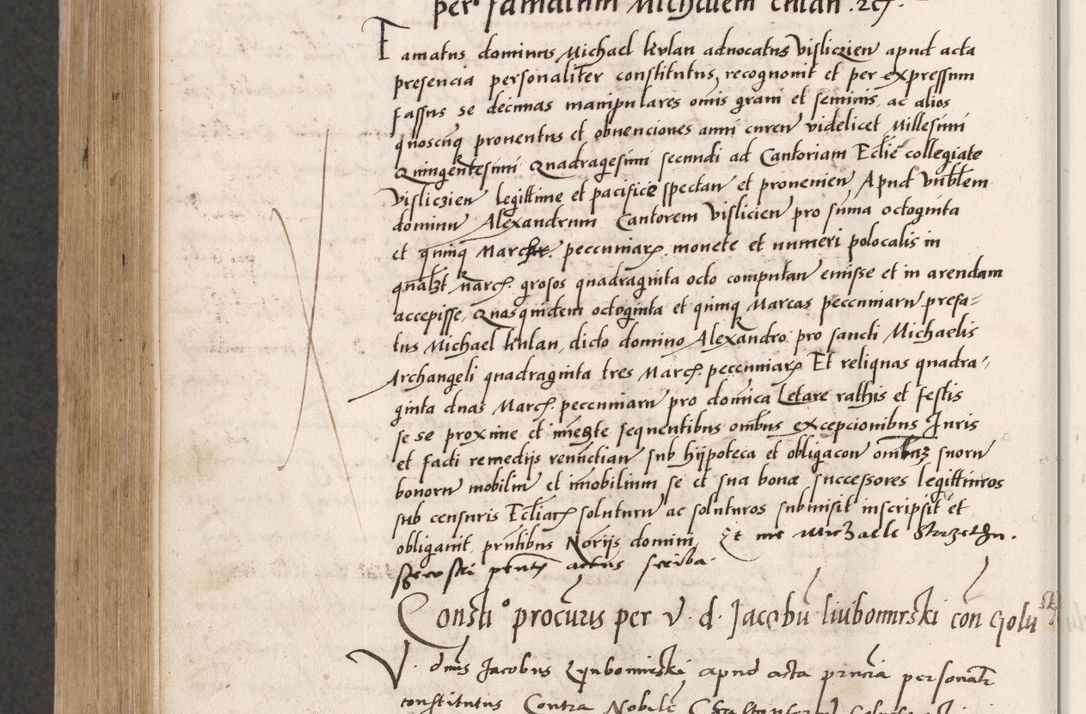 per famatum Michaelem Kulan .zcꝭ.
Famatus dominus Michael Kulan advocatus Visliczien apud acta
presencia personaliter constitutus, recognovit et per expressum
fassus se decimas manipulares omis grani et seminis, ac alios
quoscunq proventus et obvenciones anni curen videlicet Millesimi
Quingentesimi Quadragesimi secundi ad Cantoriam Ecclie collegiate
Visliczien legittime et pacifice spectan et provenien Apud Vnblem
dominum Alexandrum Cantorem Vislicien pro suma octoginta
et quinq Marchar. pecuniarꝝ monete et numeri polocalis in
qualt March grosos quadraginta octo computan emisse et in arendam
accepisse, Quasquidem octoginta et quinq Marcas pecuniarum prefa-
tus Michael Kulan, dicto domino Alexandro pro sancti Michaelis
Archangeli quadraginta tres March pecuniarꝝ Et reliquas quadra-
ginta duas March pecuniarum pro dominica Letare ratthis et festis
se se proxime et imedte sequentibus ombus excepcionibus Iuris
et facti remedijs renuctian sub hijpoteca et obligacon ombus suorum
bonorum mobilium et imobilium se et sua bona, successores legittimos
sub censuris Ecclіarꝝ soluturum ac soluturos submisit inscripsit et
obligavit, pntibus Norijs domini, Et me Michaele Strzezn.
szewski pntis actus scriba
Consti° procuris per V. d. Jacobum liubomirski con Golu sk
V. dnus Jacobus Lyubomirski apud acta pncia personalr
constitutus Contra Nobile